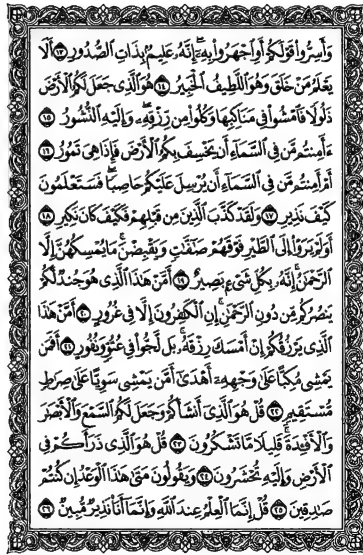 وَأَسِرُّوا۟ قَوْلَكُمْ أَوِ ٱجْهَرُوا۟ بِهِۦٓ إِنَّهُۥ عَلِيمٌۢ بِذَاتِ ٱلصُّدُورِ ١٣ أَلَا
يَعْلَمُ مَنْ خَلَقَ وَهُوَ ٱللَّطِيفُ ٱلْخَبِيرُ ١٤ هُوَ ٱلَّذِى جَعَلَ لَكُمُ ٱلْأَرْضَ
ذَلُولًا فَٱمْشُوا۟ فِى مَنَاكِبِهَا وَكُلُوا۟ مِن رِّزْقِهِۦ وَإِلَيْهِ ٱلنُّشُورُ ١٥
ءَأَمِنتُم مَّن فِى ٱلسَّمَآءِ أَن يَخْسِفَ بِكُمُ ٱلْأَرْضَ فَإِذَا هِىَ تَمُورُ ١٦
أَمْ أَمِنتُم مَّن فِى ٱلسَّمَآءِ أَن يُرْسِلَ عَلَيْكُمْ حَاصِبًا فَسَتَعْلَمُونَ
كَيْفَ نَذِيرِ ١٧ وَلَقَدْ كَذَّبَ ٱلَّذِينَ مِن قَبْلِهِمْ فَكَيْفَ كَانَ نَكِيرِ ١٨
أَوَلَمْ يَرَوْا۟ إِلَى ٱلطَّيْرِ فَوْقَهُمْ صَٰٓفَّٰتٍ وَيَقْبِضْنَ مَا يُمْسِكُهُنَّ إِلَّا
ٱلرَّحْمَٰنُ إِنَّهُۥ بِكُلِّ شَىْءٍۭ بَصِيرٌ ١٩ أَمَّنْ هَٰذَا ٱلَّذِى هُوَ جُندٌ لَّكُمْ
يَنصُرُكُم مِّن دُونِ ٱلرَّحْمَٰنِ إِنِ ٱلْكَٰفِرُونَ إِلَّا فِى غُرُورٍ ٢٠ أَمَّنْ هَٰذَا
ٱلَّذِى يَرْزُقُكُمْ إِنْ أَمْسَكَ رِزْقَهُۥ بَل لَّجُّوا۟ فِى عُتُوٍّ وَنُفُورٍ ٢١ أَفَمَن
يَمْشِى مُكِبًّا عَلَىٰ وَجْهِهِۦٓ أَهْدَىٰٓ أَمَّن يَمْشِى سَوِيًّا عَلَىٰ صِرَٰطٍ
مُّسْتَقِيمٍ ٢٢ قُلْ هُوَ ٱلَّذِىٓ أَنشَأَكُمْ وَجَعَلَ لَكُمُ ٱلسَّمْعَ وَٱلْأَبْصَٰرَ
وَٱلْأَفْـِٔدَةَ قَلِيلًا مَّا تَشْكُرُونَ ٢٣ قُلْ هُوَ ٱلَّذِى ذَرَأَكُمْ فِى
ٱلْأَرْضِ وَإِلَيْهِ تُحْشَرُونَ ٢٤ وَيَقُولُونَ مَتَىٰ هَٰذَا ٱلْوَعْدُ إِن كُنتُمْ
صَٰدِقِينَ ٢٥ قُلْ إِنَّمَا ٱلْعِلْمُ عِندَ ٱللَّهِ وَإِنَّمَآ أَنَا۠ نَذِيرٌ مُّبِينٌ ٢٦